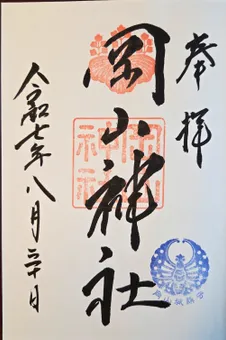 奉拝
岡山神社
岡山神社
令和七年八月三十日